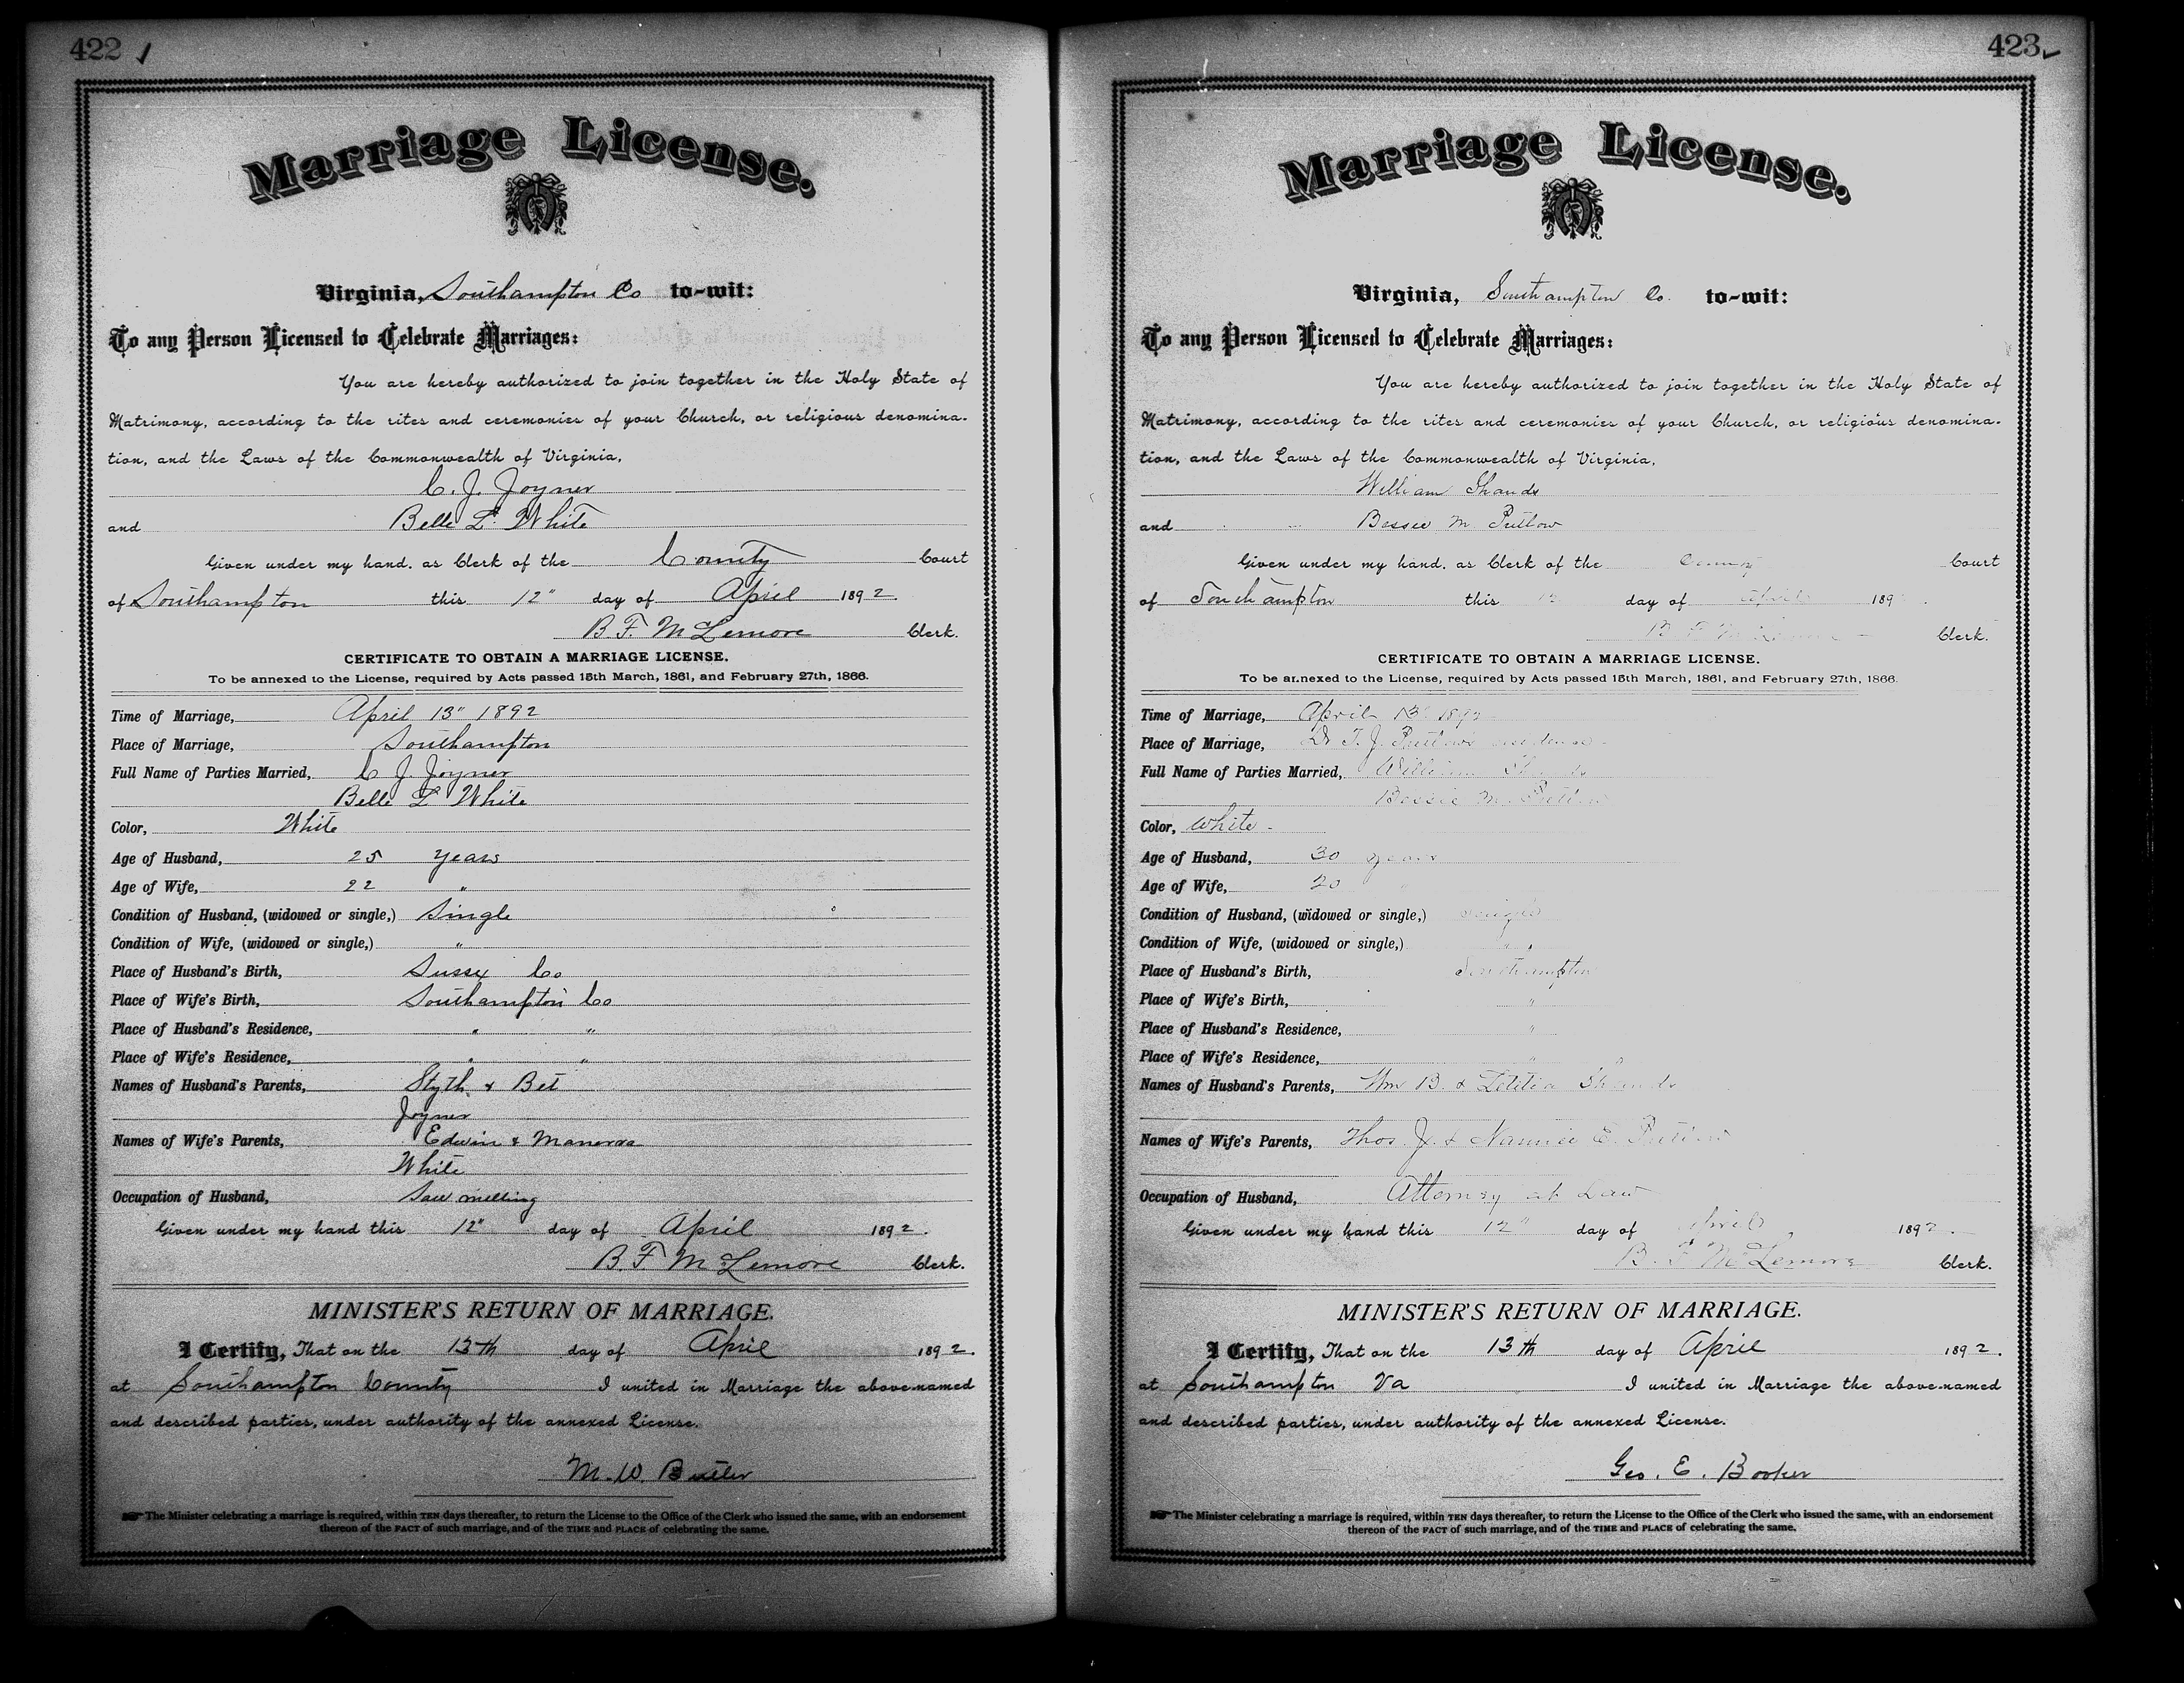 422
Marriage License.
Virginia, Southampton Co to-wit:
To any Person Licensed to Celebrate Marriages:
You are hereby authorized to join together in the Holy State of
Matrimony, according to the rites and ceremonies of your Church, or religious denomina-
tion, and the Laws of the Commonwealth of Virginia,
C. J. Joyner
and Belle L. White
Given under my hand, as Clerk of the County Court
of Southampton this 12" day of April 1892.
B. F. McLemore Clerk.
CERTIFICATE TO OBTAIN A MARRIAGE LICENSE.
To be annexed to the License, required by Acts passed 15th March, 1861, and February 27th, 1866.
Time of Marriage, April 13" 1892
Place of Marriage, Southampton
Full Name of Parties Married, C J. Joyner
Belle L White
Color, White
Age of Husband, 25 years
Age of Wife, 22 "
Condition of Husband, (widowed or single,) Single
Condition of Wife, (widowed or single,) "
Place of Husband's Birth, Sussex Co
Place of Wife's Birth, Southampton Co
Place of Husband's Residence, " "
Place of Wife's Residence, " "
Names of Husband's Parents, Styth & Bet
Joyner
Names of Wife's Parents, Edwin & Manerva
White
Occupation of Husband, Saw milling
Given under my hand this 12" day of April 1892.
B. F McLemore Clerk.
MINISTER'S RETURN OF MARRIAGE.
I Certify, That on the 13th day of April 1892.
at Southampton County I united in Marriage the above-named
and described parties, under authority of the annexed License.
M. W. Butler
The Minister celebrating a marriage is required, within TEN days thereafter, to return the License to the Office of the Clerk who issued the same, with an endorsement
thereon of the FACT of such marriage, and of the TIME and PLACE of celebrating the same.
423
Marriage License.
Virginia, Southampton Co. to-wit:
To any Person Licensed to Celebrate Marriages:
You are hereby authorized to join together in the Holy State of
Matrimony, according to the rites and ceremonies of your Church, or religious denomina-
tion, and the Laws of the Commonwealth of Virginia,
William Shands
and Bessie M. Pretlow
Given under my hand, as Clerk of the County Court
of Southampton this 12 day of April 189
B F McLemore Clerk.
CERTIFICATE TO OBTAIN A MARRIAGE LICENSE.
To be annexed to the License, required by Acts passed 15th March, 1861, and February 27th, 1866.
Time of Marriage, April 13" 1892
Place of Marriage, Dr T. J. Pretlow's residence
Full Name of Parties Married, William Shands
Bessie M. Pretlow
Color, White
Age of Husband, 30 years
Age of Wife, 20
Condition of Husband, (widowed or single,) single
Condition of Wife, (widowed or single,) "
Place of Husband's Birth, Southampton
Place of Wife's Birth, "
Place of Husband's Residence, "
Place of Wife's Residence, "
Names of Husband's Parents, Wm B. & Letitia Shands
Names of Wife's Parents, Thos. J. & Nannie E. Pretlow
Occupation of Husband, Attorney at Law
Given under my hand this 12" day of April 1892.
B. F McLemore Clerk.
MINISTER'S RETURN OF MARRIAGE.
I Certify, That on the 13th day of April 1892.
at Southampton Va I united in Marriage the above-named
and described parties, under authority of the annexed License.
Geo. E. Booker
The Minister celebrating a marriage is required, within TEN days thereafter, to return the License to the Office of the Clerk who issued the same, with an endorsement
thereon of the FACT of such marriage, and of the TIME and PLACE of celebrating the same.